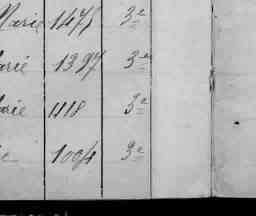 Marie 1475 3e
arié 1397 3e
arie 1118 3e
e 1004 3e